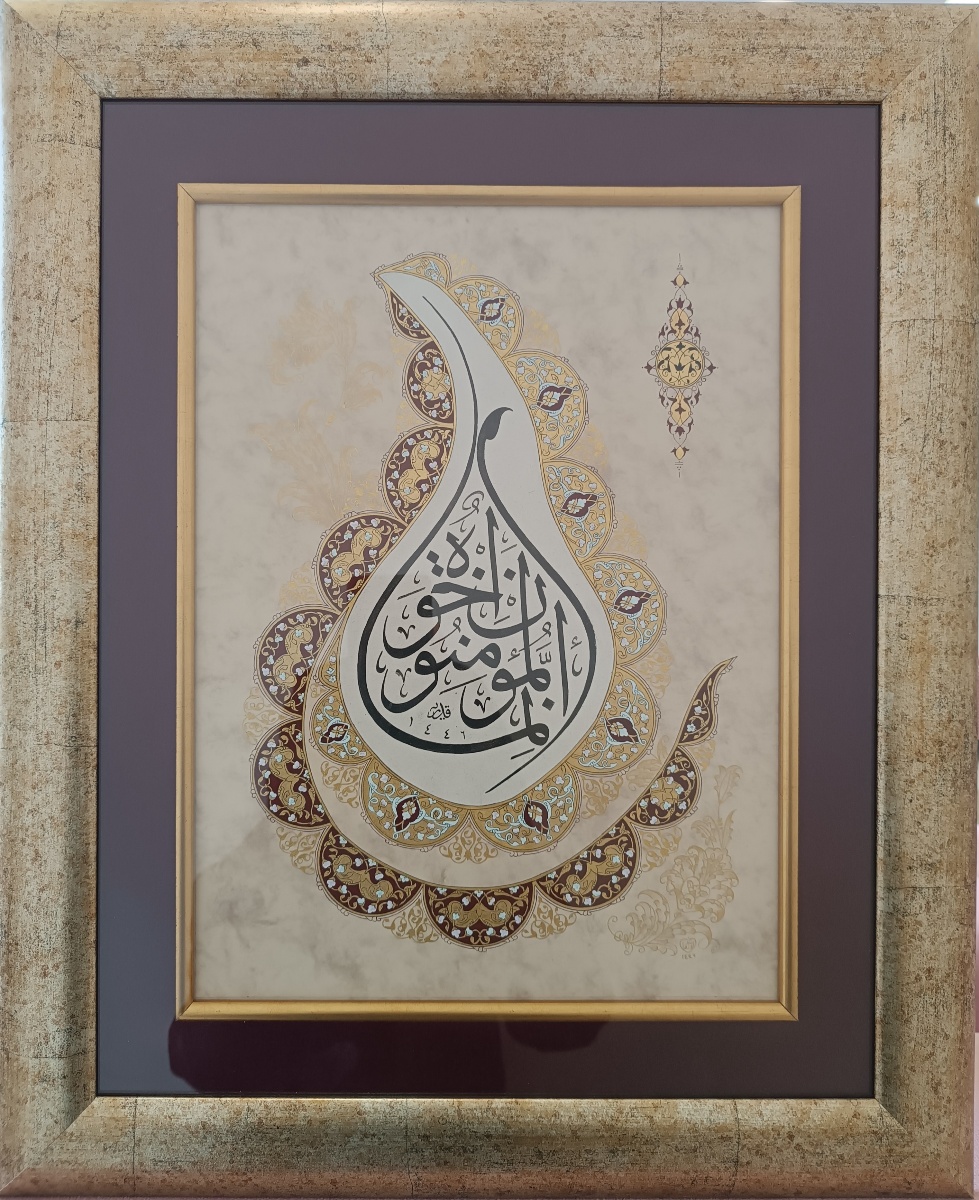 إنما المؤمنون إخوة
١٤٤٦